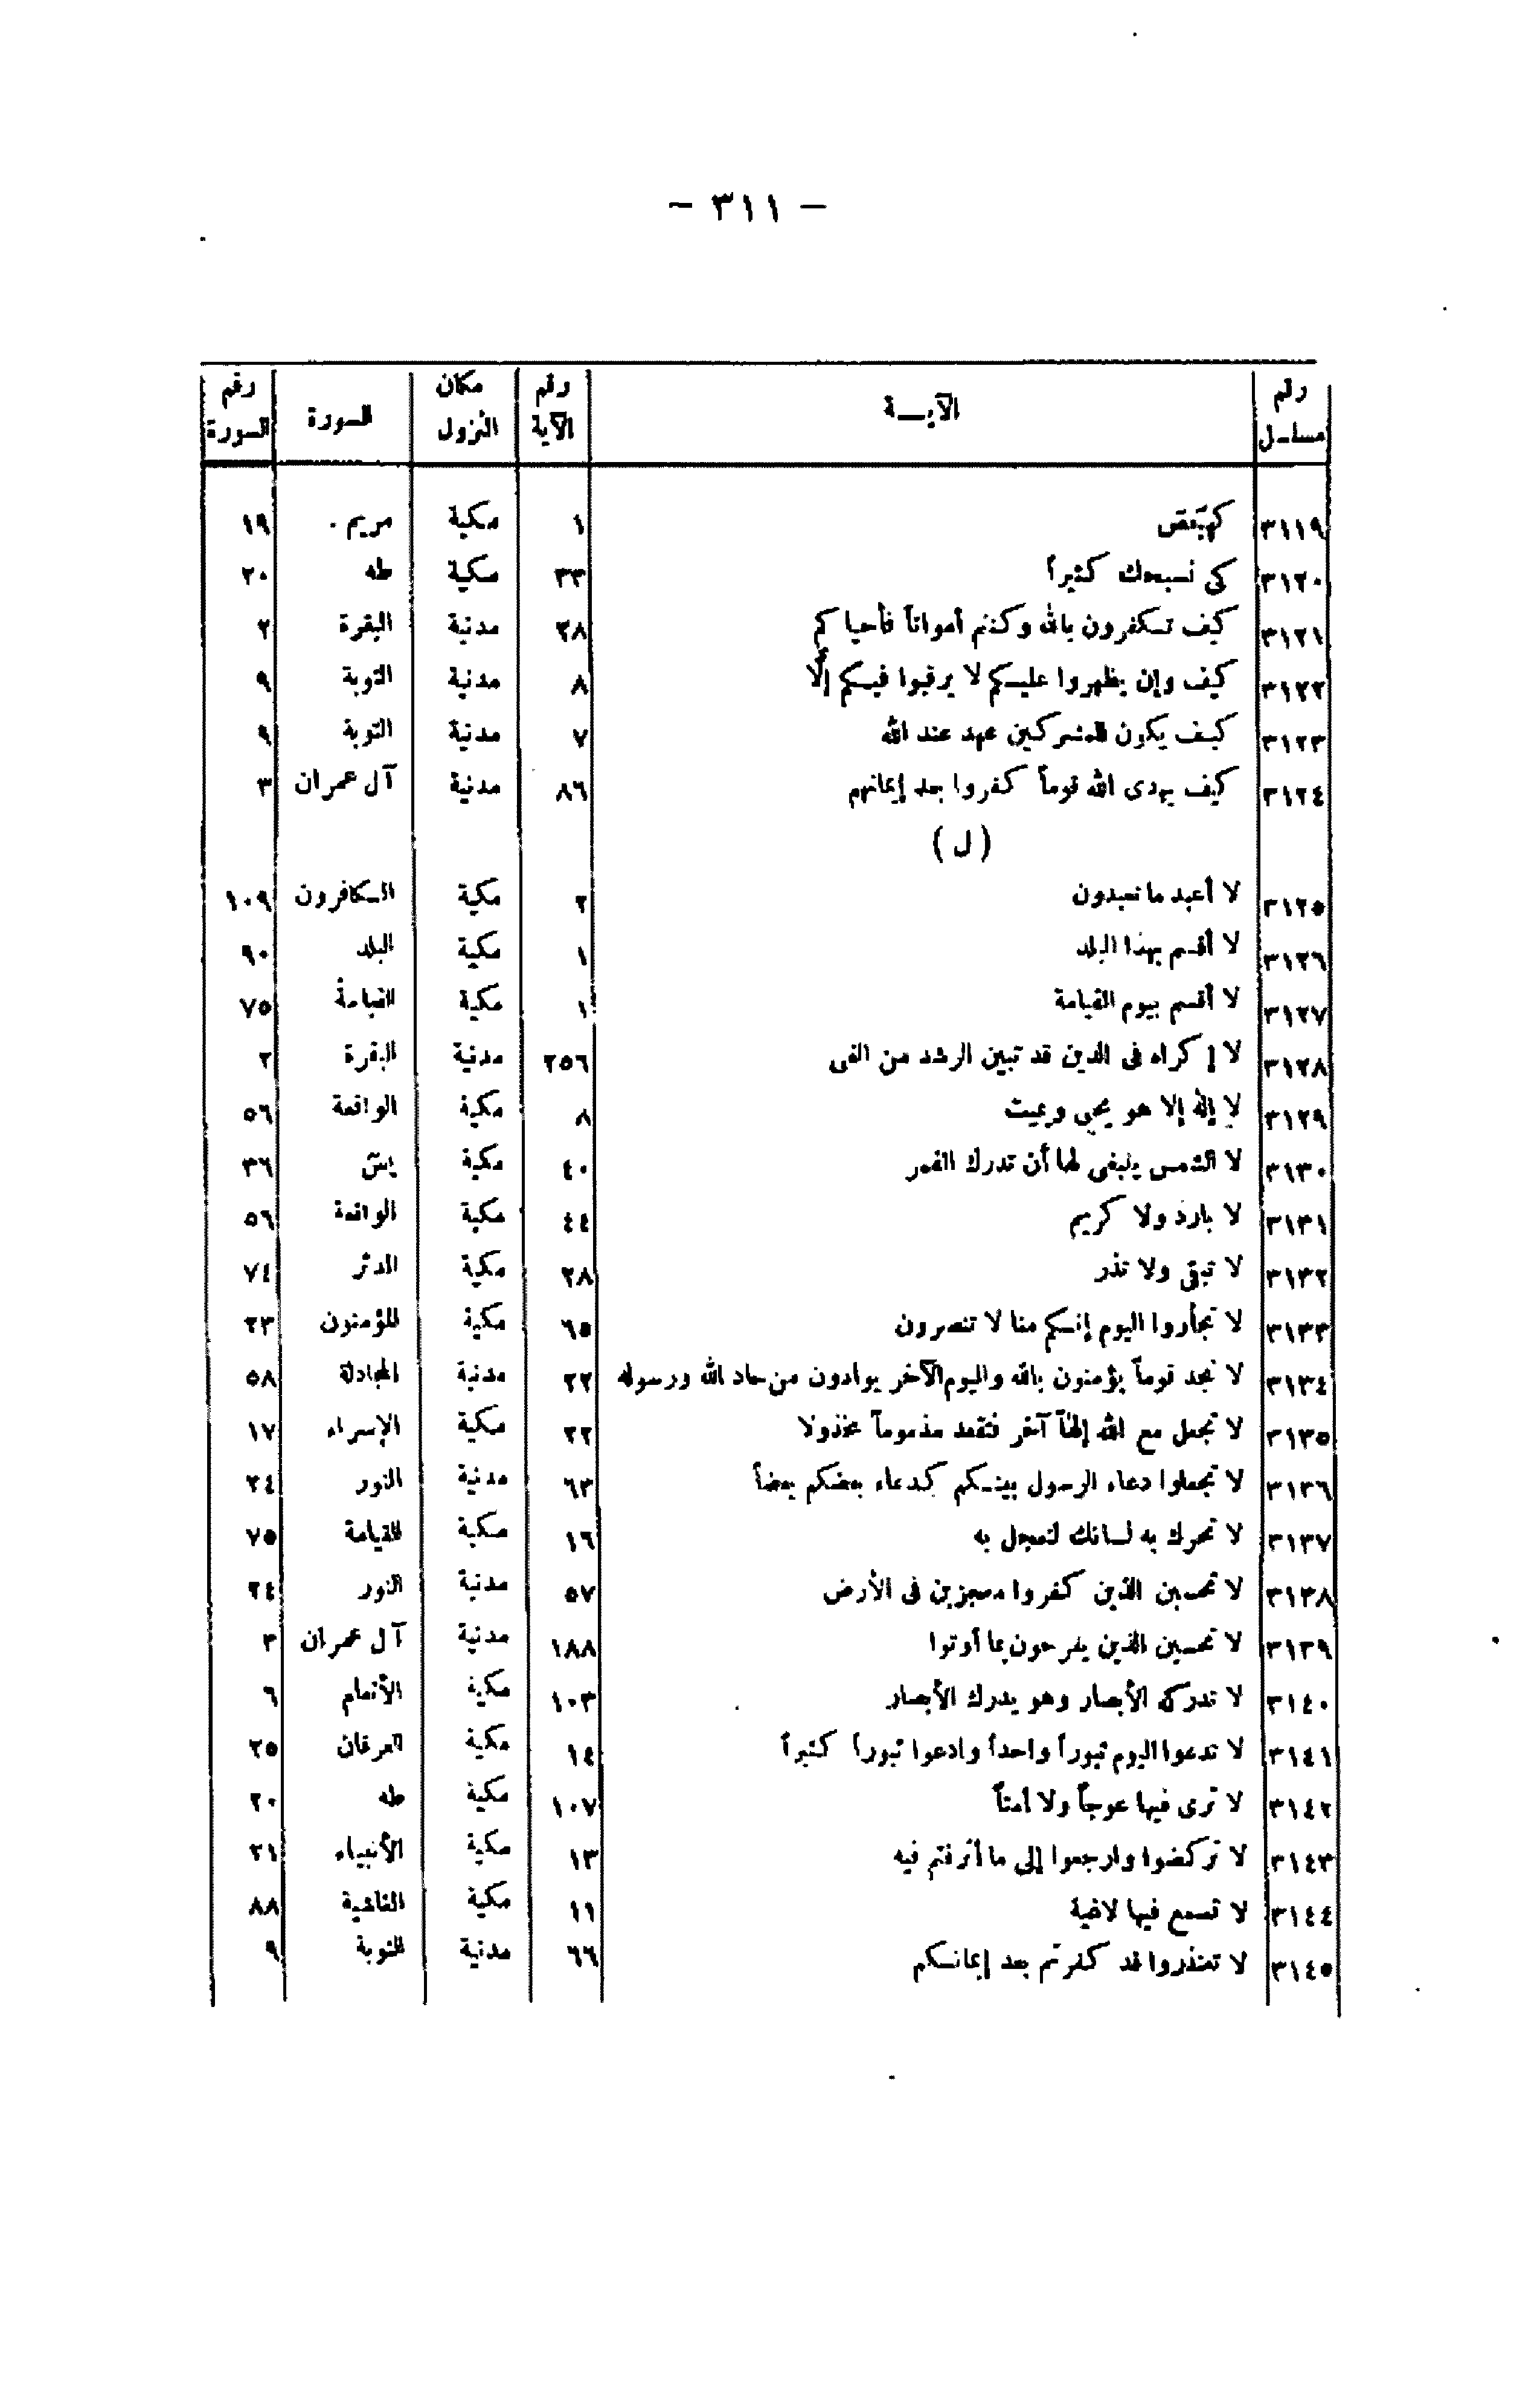 - ٣١١ -
رقم مسلسل الآيـــة رقم الآية مكان النزول السورة رقم السورة
٣١١٩ كهيعص ١ مكية مريم ١٩
٣١٢٠ كى نسبحك كثيراً ٣٣ مكية طه ٢٠
٣١٢١ كيف تكفرون بالله وكنتم أمواتاً فأحياكم ٢٨ مدنية البقرة ٢
٣١٢٢ كيف وإن يظهروا عليكم لا يرقبوا فيكم إلَّا ٨ مدنية التوبة ٩
٣١٢٣ كيف يكون للمشركين عهد عند الله ٧ مدنية التوبة ٩
٣١٢٤ كيف يهدى الله قوماً كفروا بعد إيمانهم ٨٦ مدنية آل عمران ٣
( ل )
٣١٢٥ لا أعبد ما تعبدون ٢ مكية الكافرون ١٠٩
٣١٢٦ لا أقسم بهذا البلد ١ مكية البلد ٩٠
٣١٢٧ لا أقسم بيوم القيامة ١ مكية القيامة ٧٥
٣١٢٨ لا إكراه فى الدين قد تبين الرشد من الغى ٢٥٦ مدنية البقرة ٢
٣١٢٩ لا إله إلا هو يحيى ويميت ٨ مكية الواقعة ٥٦
٣١٣٠ لا الشمس ينبغى لها أن تدرك القمر ٤٠ مكية يس ٣٦
٣١٣١ لا بارد ولا كريم ٤٤ مكية الواقعة ٥٦
٣١٣٢ لا تبقى ولا تذر ٢٨ مكية المدثر ٧٤
٣١٣٣ لا تجأروا اليوم إنكم منا لا تنصرون ٦٥ مكية المؤمنون ٢٣
٣١٣٤ لا تجد قوماً يؤمنون بالله واليوم الآخر يوادون من حاد الله ورسوله ٢٢ مدنية المجادلة ٥٨
٣١٣٥ لا تجعل مع الله إلهاً آخر فتقعد مذموماً مخذولا ٢٢ مكية الإسراء ١٧
٣١٣٦ لا تجعلوا دعاء الرسول بينكم كدعاء بعضكم بعضاً ٦٣ مدنية النور ٢٤
٣١٣٧ لا تحرك به لسانك لتعجل به ١٦ مكية القيامة ٧٥
٣١٣٨ لا تحسبن الذين كفروا معجزين فى الأرض ٥٧ مدنية النور ٢٤
٣١٣٩ لا تحسبن الذين يفرحون بما أوتوا ١٨٨ مدنية آل عمران ٣
٣١٤٠ لا تدركه الأبصار وهو يدرك الأبصار ١٠٣ مكية الأنعام ٦
٣١٤١ لا تدعوا اليوم ثبوراً واحداً وادعوا ثبوراً كثيراً ١٤ مكية الفرقان ٢٥
٣١٤٢ لا ترى فيها عوجاً ولا أمتاً ١٠٧ مكية طه ٢٠
٣١٤٣ لا تركضوا وارجعوا إلى ما أترفتم فيه ١٣ مكية الأنبياء ٢١
٣١٤٤ لا تسمع فيها لاغية ١١ مكية الغاشية ٨٨
٣١٤٥ لا تعتذروا قد كفرتم بعد إيمانكم ٦٦ مدنية التوبة ٩